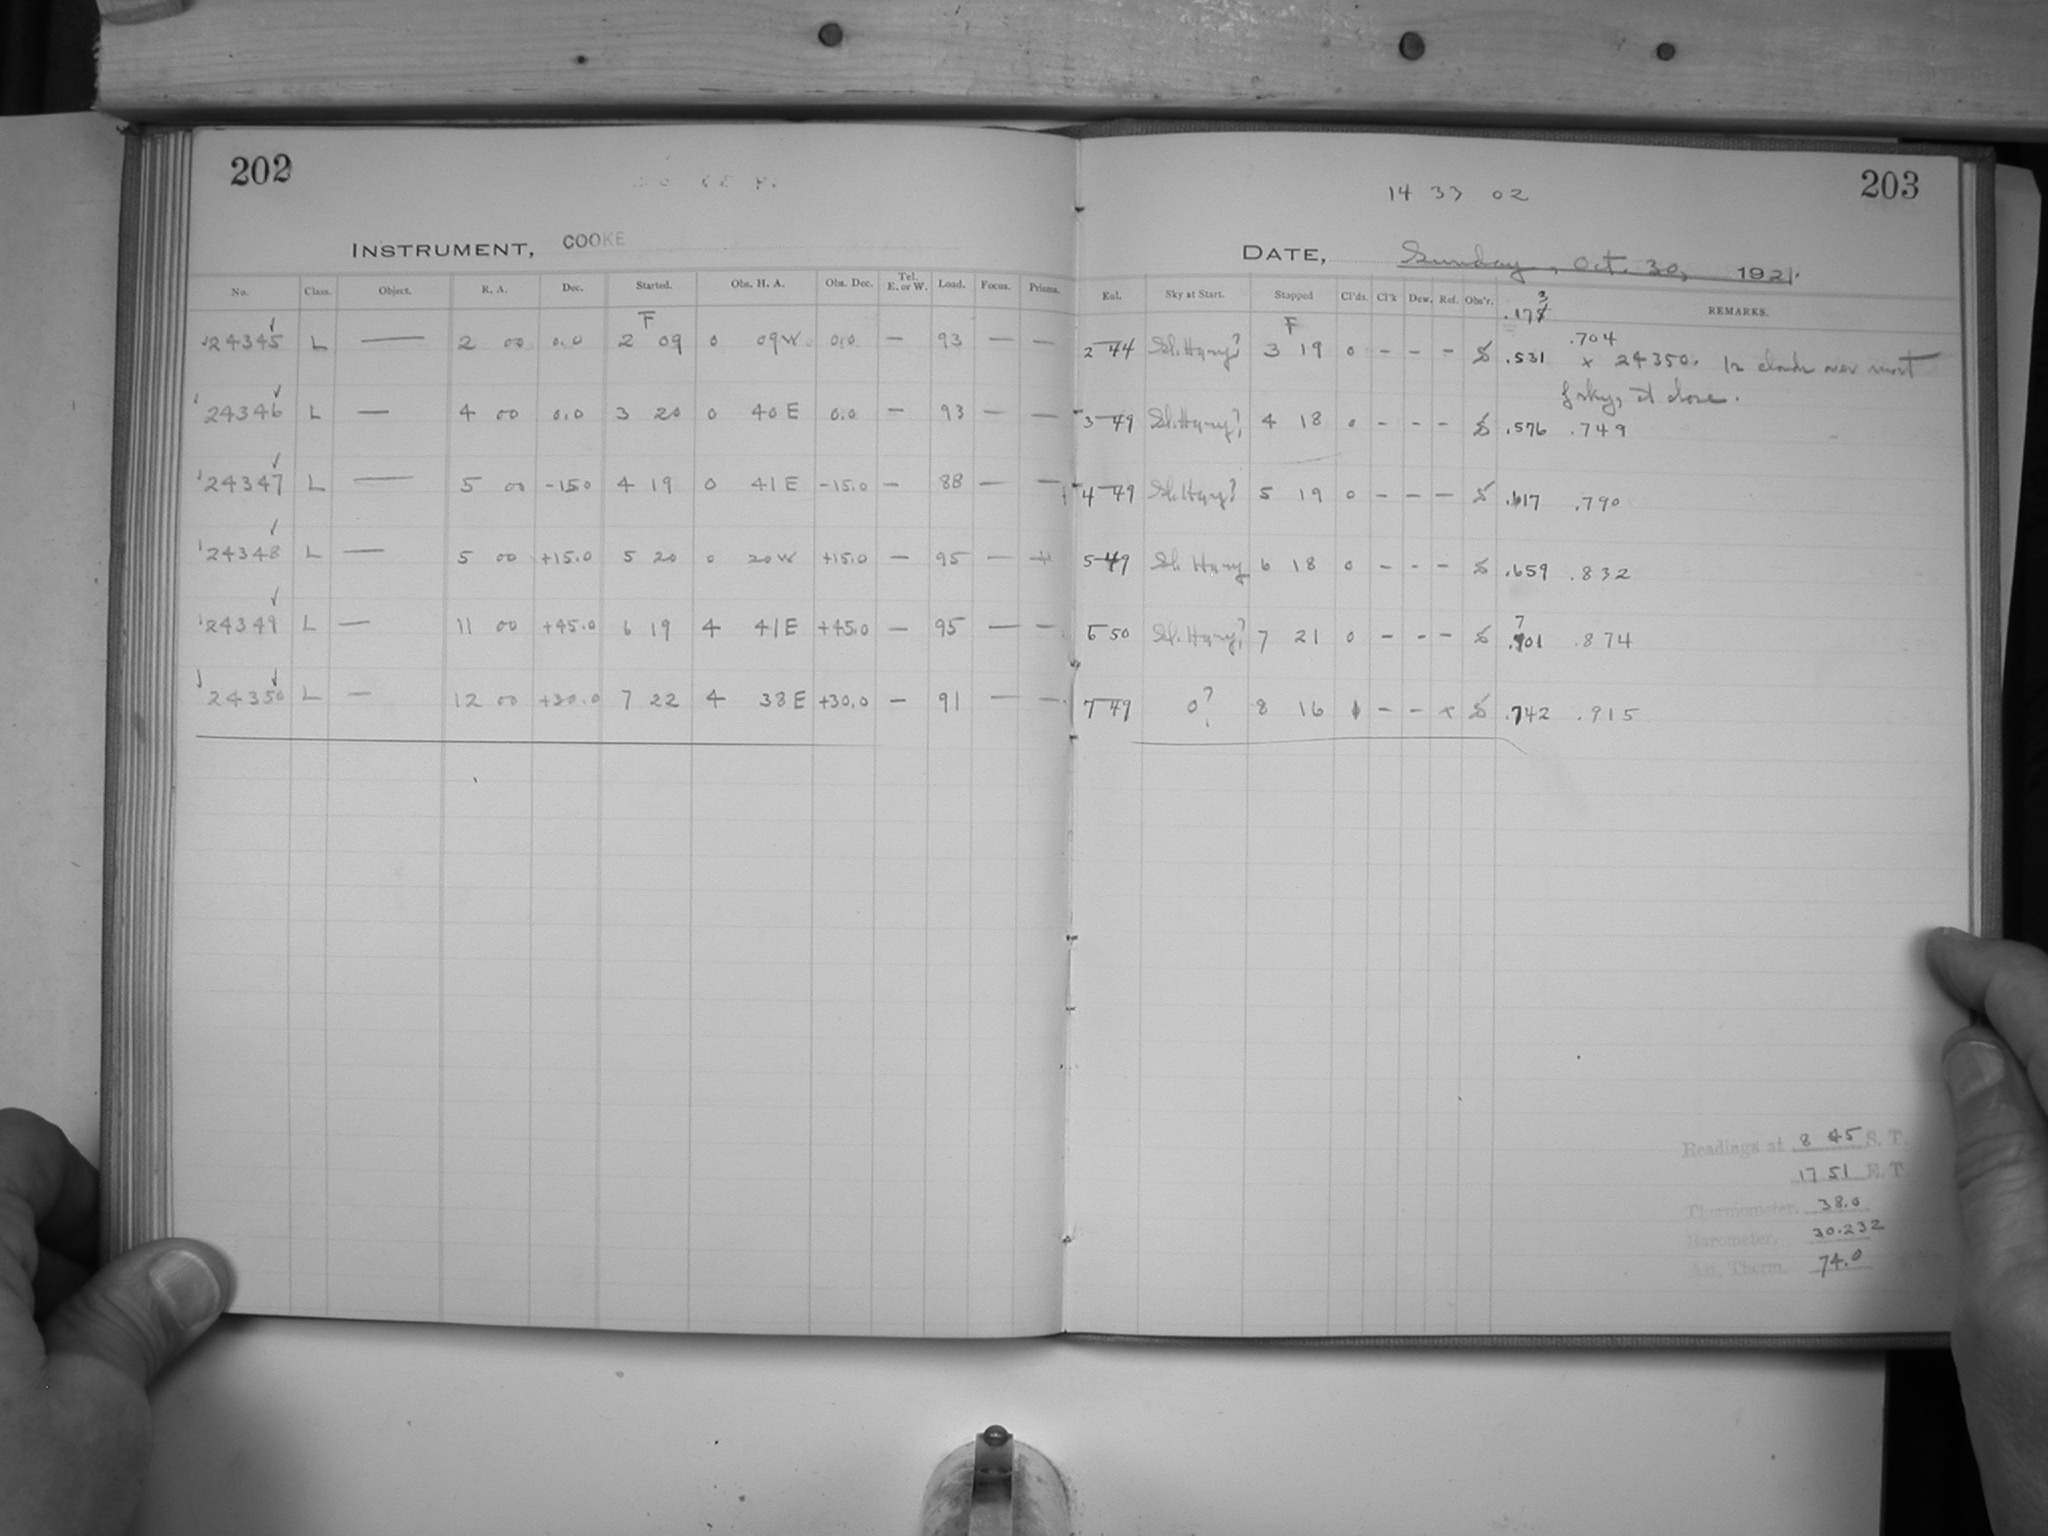 202
INSTRUMENT, COOKE
No. Class. Object. R. A. Dec. Started. Obs. H. A. Obs. Dec. Tel. E. or W. Load. Focus. Prisms.
F
24345 L — 2 00 0.0 2 09 0 09W 0.0 — 93 — —
24346 L — 4 00 0.0 3 20 0 40 E 0.0 — 93 — —
24347 L — 5 00 -15.0 4 19 0 41 E -15.0 — 88 — —
24348 L — 5 00 +15.0 5 20 0 20 W +15.0 — 95 —
24349 L — 11 00 +45.0 6 19 4 41 E +45.0 — 95 — —
24350 L — 12 00 +30.0 7 22 4 38 E +30.0 — 91 — —
203
14 33 02
DATE, Sunday, Oct. 30, 1921.
Exl. Sky at Start. Stopped Cl'ds. Cl'k Dew. Ref. Obs'r. REMARKS.
3
.178
F .704
2 44 Sl. Hazy? 3 19 0 - - - .531 x 24350. In clouds over most
of sky, at close.
3 49 Sl. Hazy? 4 18 0 - - - .576 .749
4 49 Sl. Hazy? 5 19 0 - - - .617 .790
5 49 Sl. Hazy 6 18 0 - - - .659 .832
7
50 Sl. Hazy? 7 21 0 - - - 01 .874
7 49 0? 8 16 - - x .742 .915
Readings at 8 45 S. T.
17 51 E. T.
Thermometer, 38.0
Barometer, 30.232
Att. Therm. 74.0